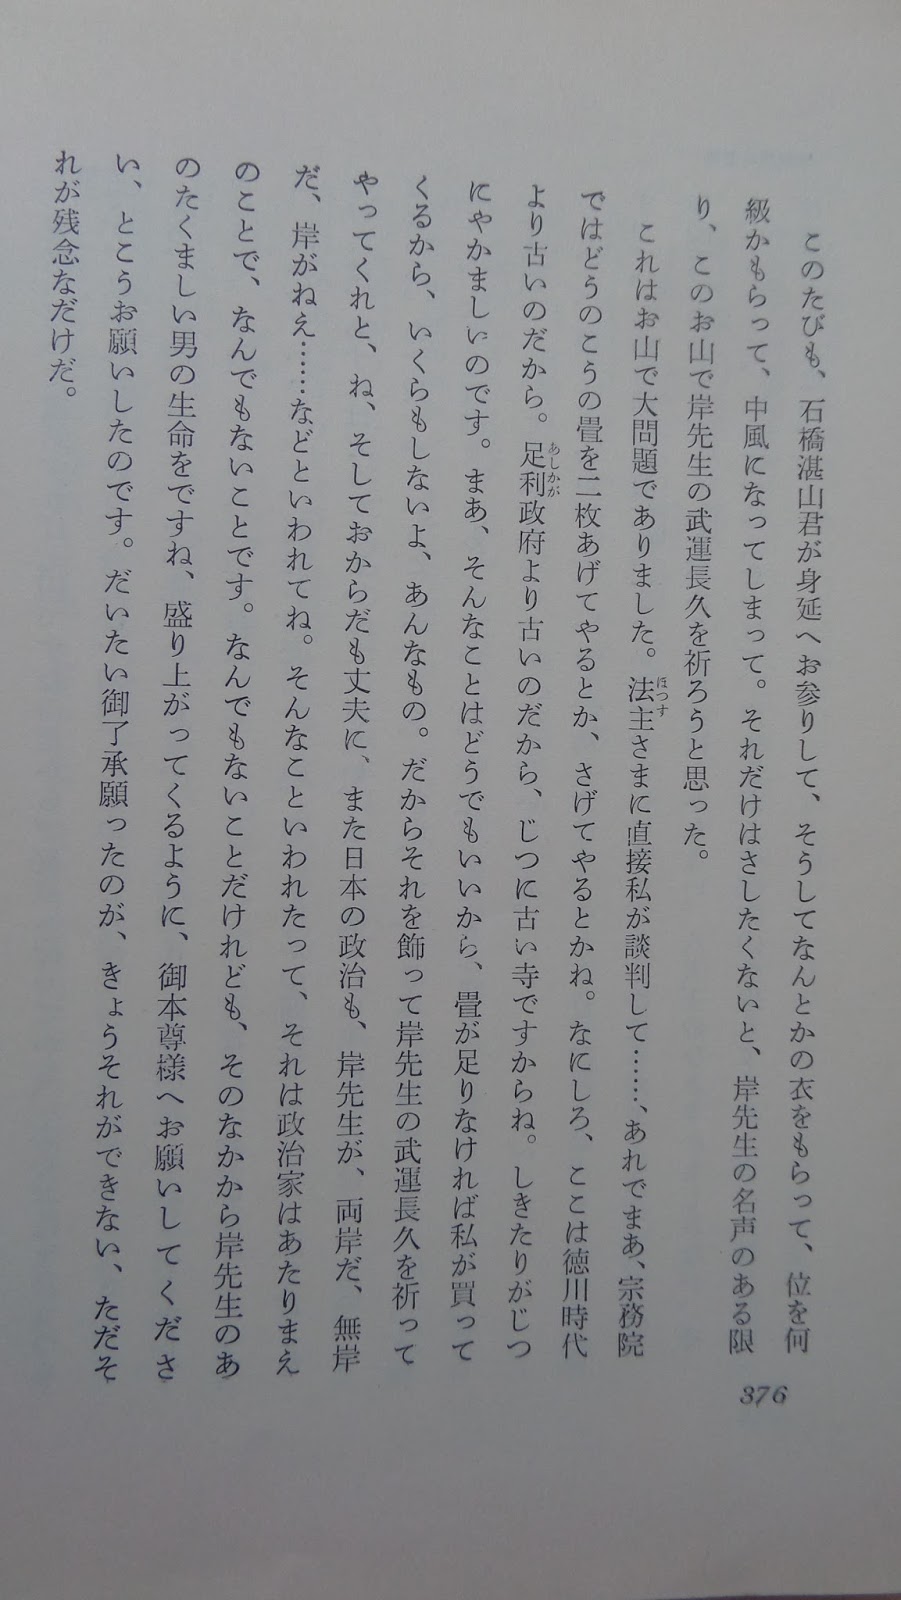 このたびも、石橋湛山君が身延へお参りして、そうしてなんとかの衣をもらって、位を何
級かもらって、中風になってしまって。それだけはさしたくないと、岸先生の名声のある限
り、このお山で岸先生の武運長久を祈ろうと思った。
これはお山で大問題でありました。法主さまに直接私が談判して……、あれでまあ、宗務院
ほつす
ではどうのこうの畳を二枚あげてやるとか、さげてやるとかね。なにしろ、ここは徳川時代
より古いのだから。足利政府より古いのだから、じつに古い寺ですからね。しきたりがじつ
あしかが
にやかましいのです。まあ、そんなことはどうでもいいから、畳が足りなければ私が買って
くるから、いくらもしないよ、あんなもの。だからそれを飾って岸先生の武運長久を祈って
やってくれと、ね、そしておからだも丈夫に、また日本の政治も、岸先生が、両岸だ、無岸
だ、岸がねえ……などといわれてね。そんなこといわれたって、それは政治家はあたりまえ
のことで、なんでもないことです。なんでもないことだけれども、そのなかから岸先生のあ
のたくましい男の生命をですね、盛り上がってくるように、御本尊様へお願いしてくださ
い、とこうお願いしたのです。だいたい御了承願ったのが、きょうそれができない、ただそ
れが残念なだけだ。
376